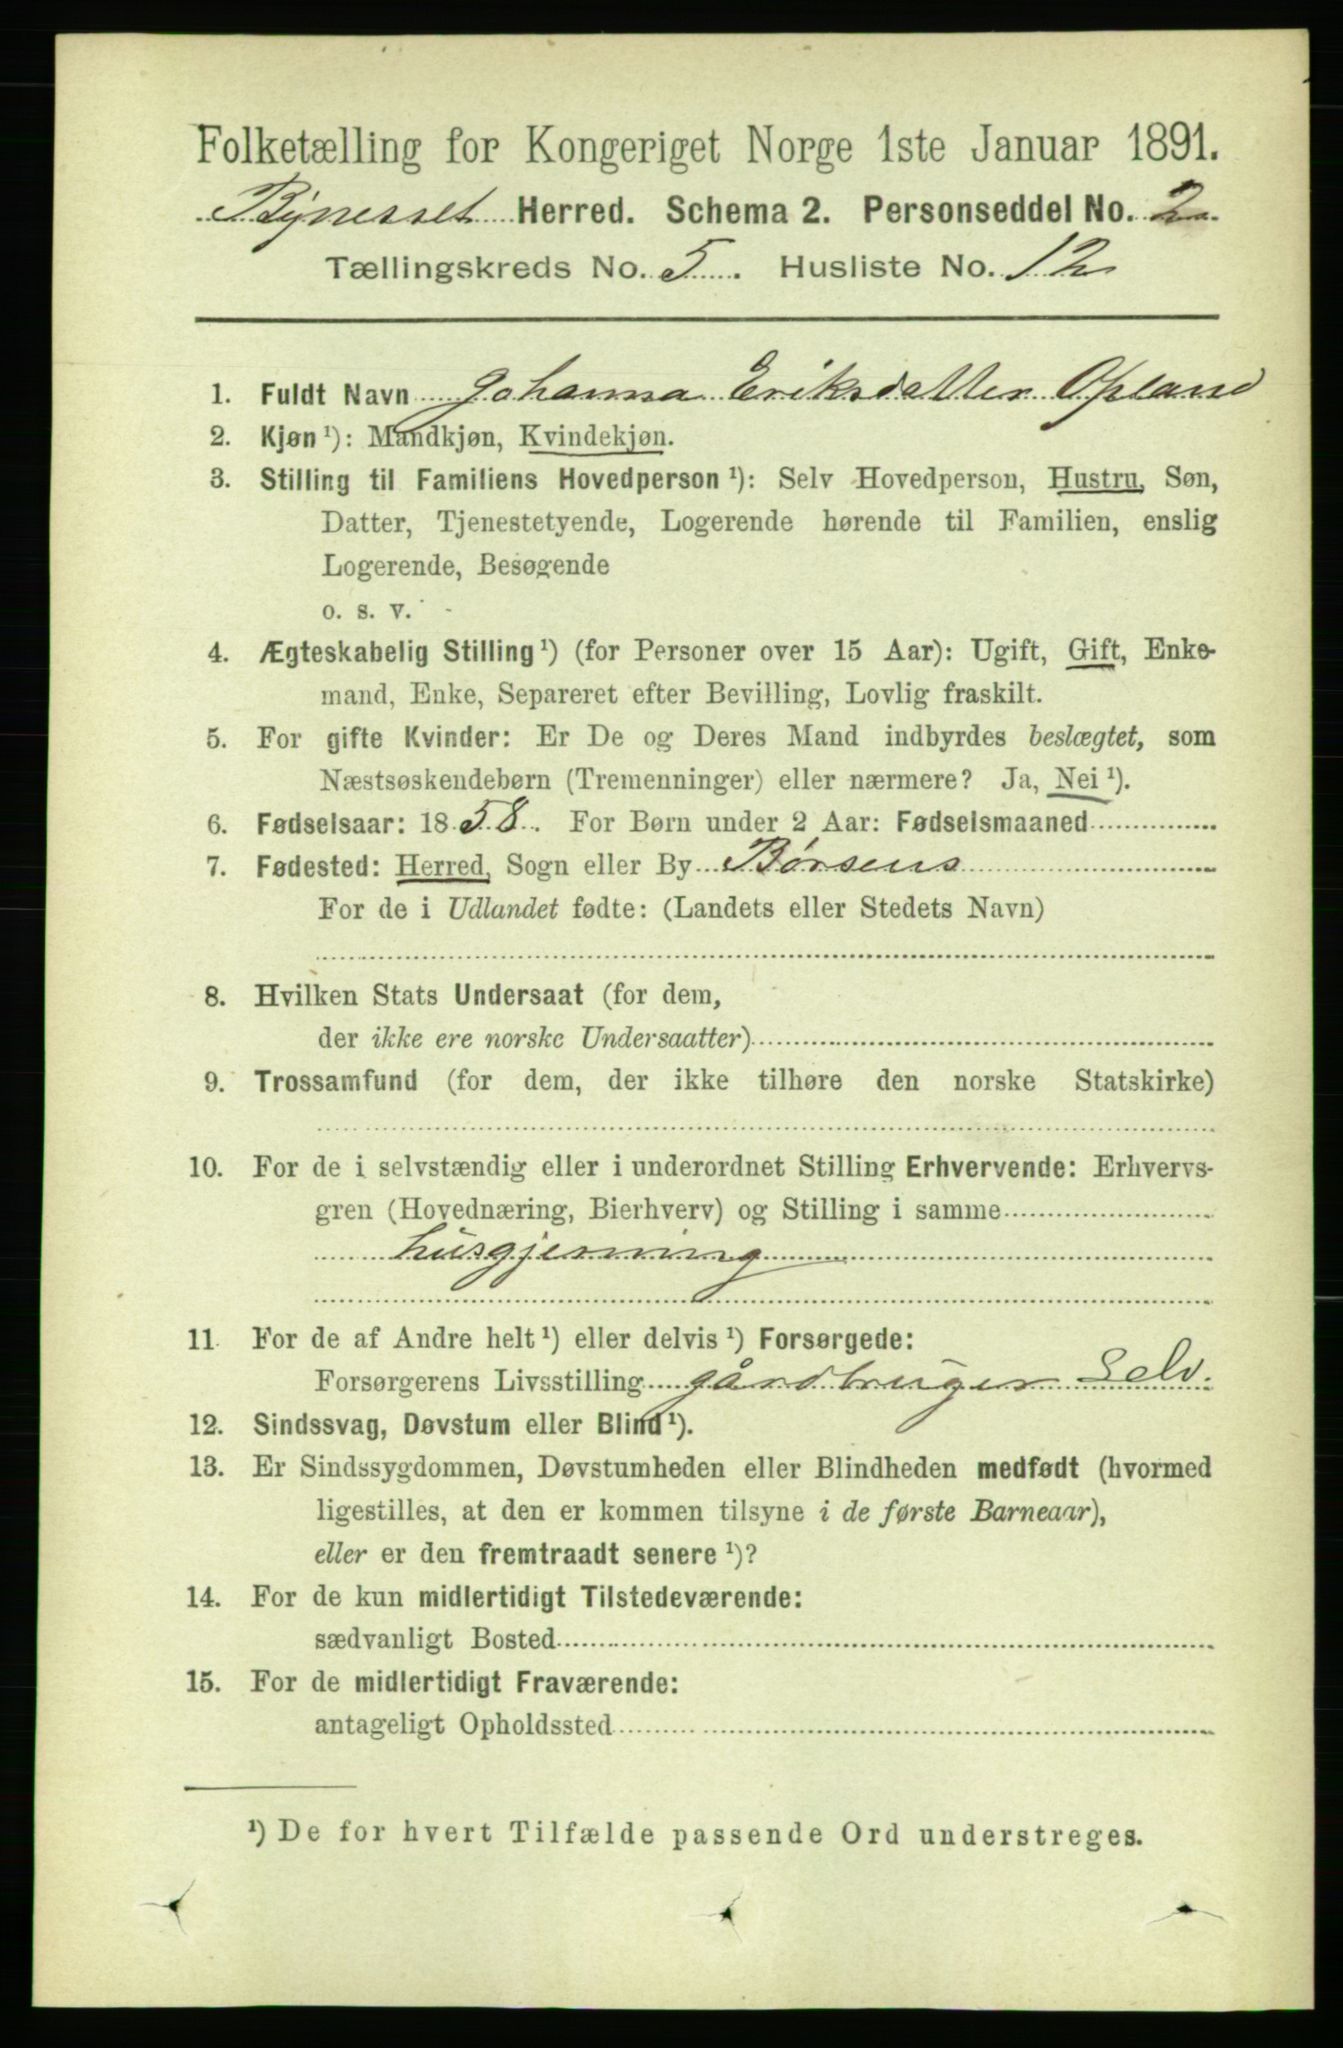 Folketælling for Kongeriget Norge 1ste Januar 1891.
Bynesset Herred. Schema 2. Personseddel No. 2
Tællingskreds No. 5. Husliste No. 12
1. Fuldt Navn Johanna Eriksdatter Opland
2. Kjøn ¹): Mandkjøn, Kvindekjøn.
3. Stilling til Familiens Hovedperson ¹): Selv Hovedperson, Hustru, Søn,
Datter, Tjenestetyende, Logerende hørende til Familien, enslig
Logerende, Besøgende
o. s. v.
4. Ægteskabelig Stilling ¹) (for Personer over 15 Aar): Ugift, Gift, Enke-
mand, Enke, Separeret efter Bevilling, Lovlig fraskilt.
5. For gifte Kvinder: Er De og Deres Mand indbyrdes beslægtet, som
Næstsøskendebørn (Tremenninger) eller nærmere? Ja, Nei ¹).
6. Fødselsaar: 1858. For Børn under 2 Aar: Fødselsmaaned
7. Fødested: Herred, Sogn eller By Børsens
For de i Udlandet fødte: (Landets eller Stedets Navn)
8. Hvilken Stats Undersaat (for dem,
der ikke ere norske Undersaatter)
9. Trossamfund (for dem, der ikke tilhøre den norske Statskirke)
10. For de i selvstændig eller i underordnet Stilling Erhvervende: Erhvervs-
gren (Hovednæring, Bierhverv) og Stilling i samme
husgjerning
11. For de af Andre helt ¹) eller delvis ¹) Forsørgede:
Forsørgerens Livsstilling gårdbruger Selv.
12. Sindssvag, Døvstum eller Blind ¹).
13. Er Sindssygdommen, Døvstumheden eller Blindheden medfødt (hvormed
ligestilles, at den er kommen tilsyne i de første Barneaar),
eller er den fremtraadt senere ¹)?
14. For de kun midlertidigt Tilstedeværende:
sædvanligt Bosted
15. For de midlertidigt Fraværende:
antageligt Opholdssted
¹) De for hvert Tilfælde passende Ord understreges.